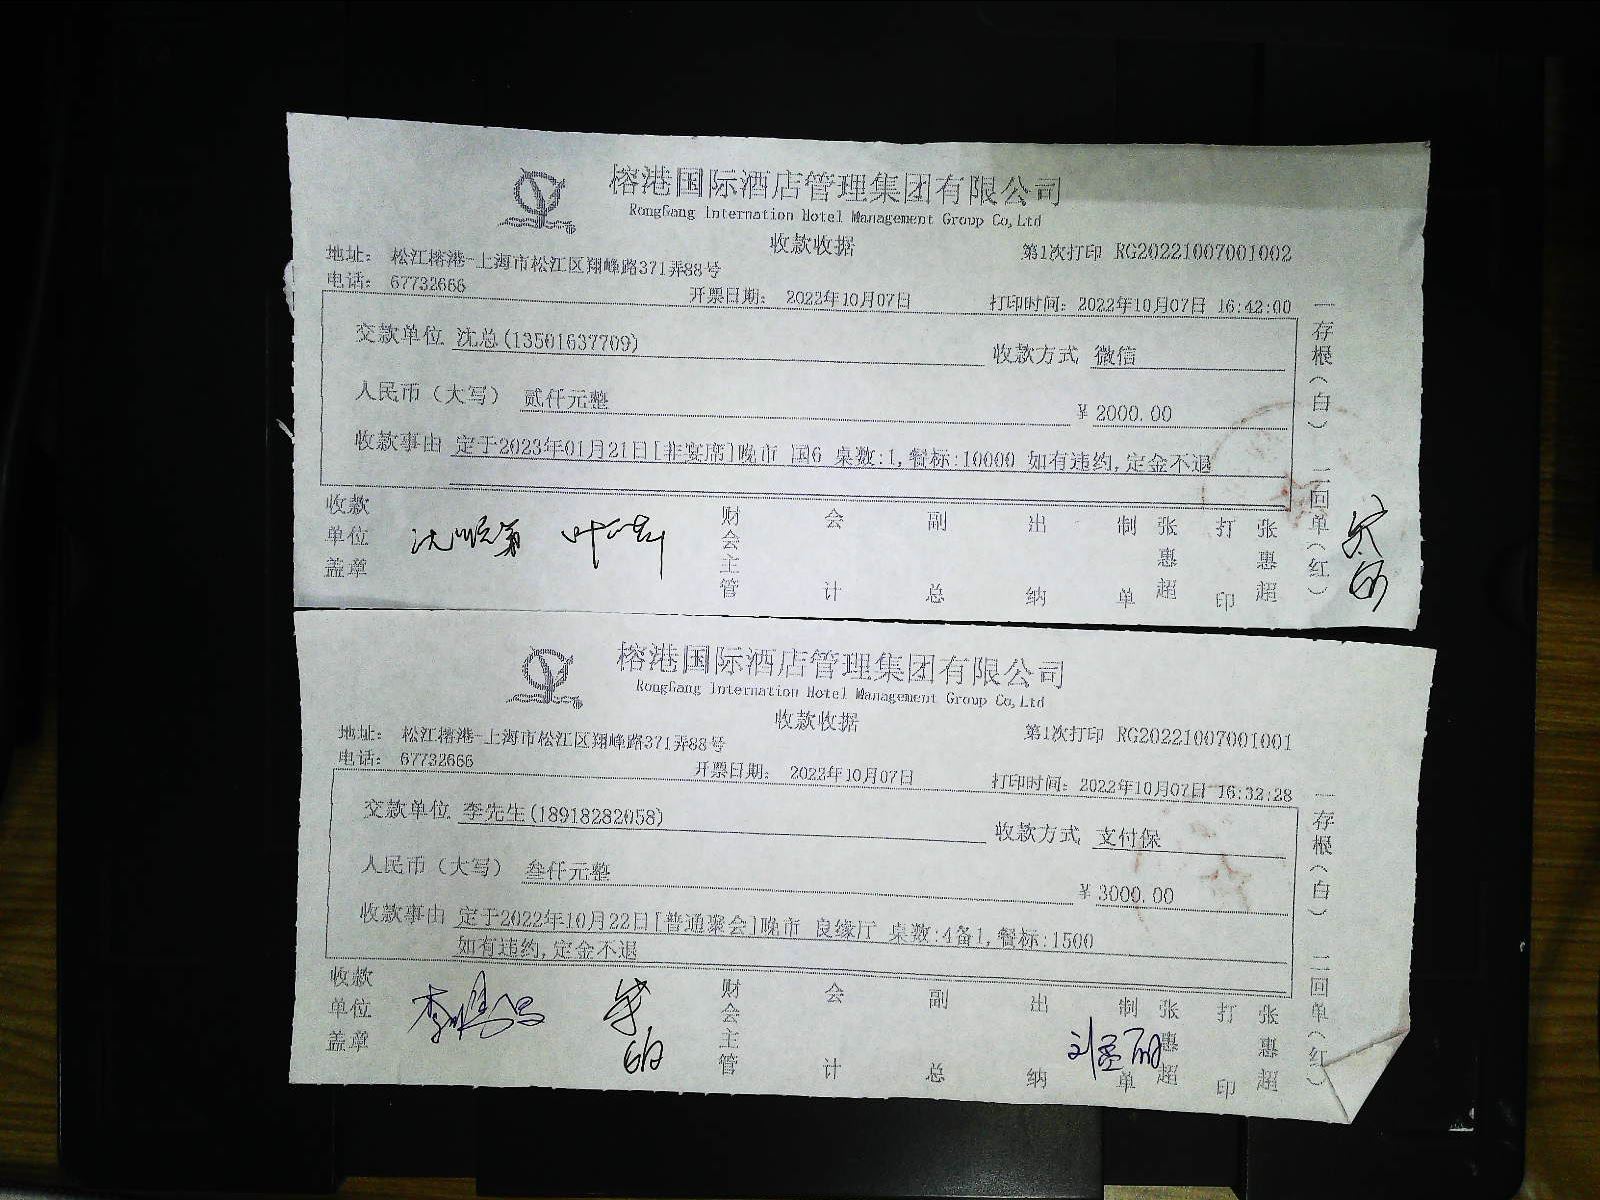 榕港国际酒店管理集团有限公司
RongGang Internation Hotel Management Group Co,Ltd
收款收据
第1次打印 RG20221007001002
地址： 松江榕港-上海市松江区翔峰路371弄88号
电话： 67732666
开票日期： 2022年10月07日
打印时间：2022年10月07日 16:42:00
交款单位 沈总(13501637709)
收款方式 微信
人民币（大写） 贰仟元整
￥2000.00
收款事由 定于2023年01月21日[非宴席]晚市 国6 桌数:1,餐标:10000 如有违约,定金不退
收款单位盖章
财会主管
会计
副总
出纳
制单 张惠超
打印 张惠超
一存根（白） 二回单（红）
榕港国际酒店管理集团有限公司
RongGang Internation Hotel Management Group Co,Ltd
收款收据
第1次打印 RG20221007001001
地址： 松江榕港-上海市松江区翔峰路371弄88号
电话： 67732666
开票日期： 2022年10月07日
打印时间：2022年10月07日 16:32:28
交款单位 李先生(18918282058)
收款方式 支付保
人民币（大写） 叁仟元整
￥3000.00
收款事由 定于2022年10月22日[普通聚会]晚市 良缘厅 桌数:4备1,餐标:1500
如有违约,定金不退
收款单位盖章
财会主管
会计
副总
出纳
制单 张惠超
打印 张惠超
一存根（白） 二回单（红）